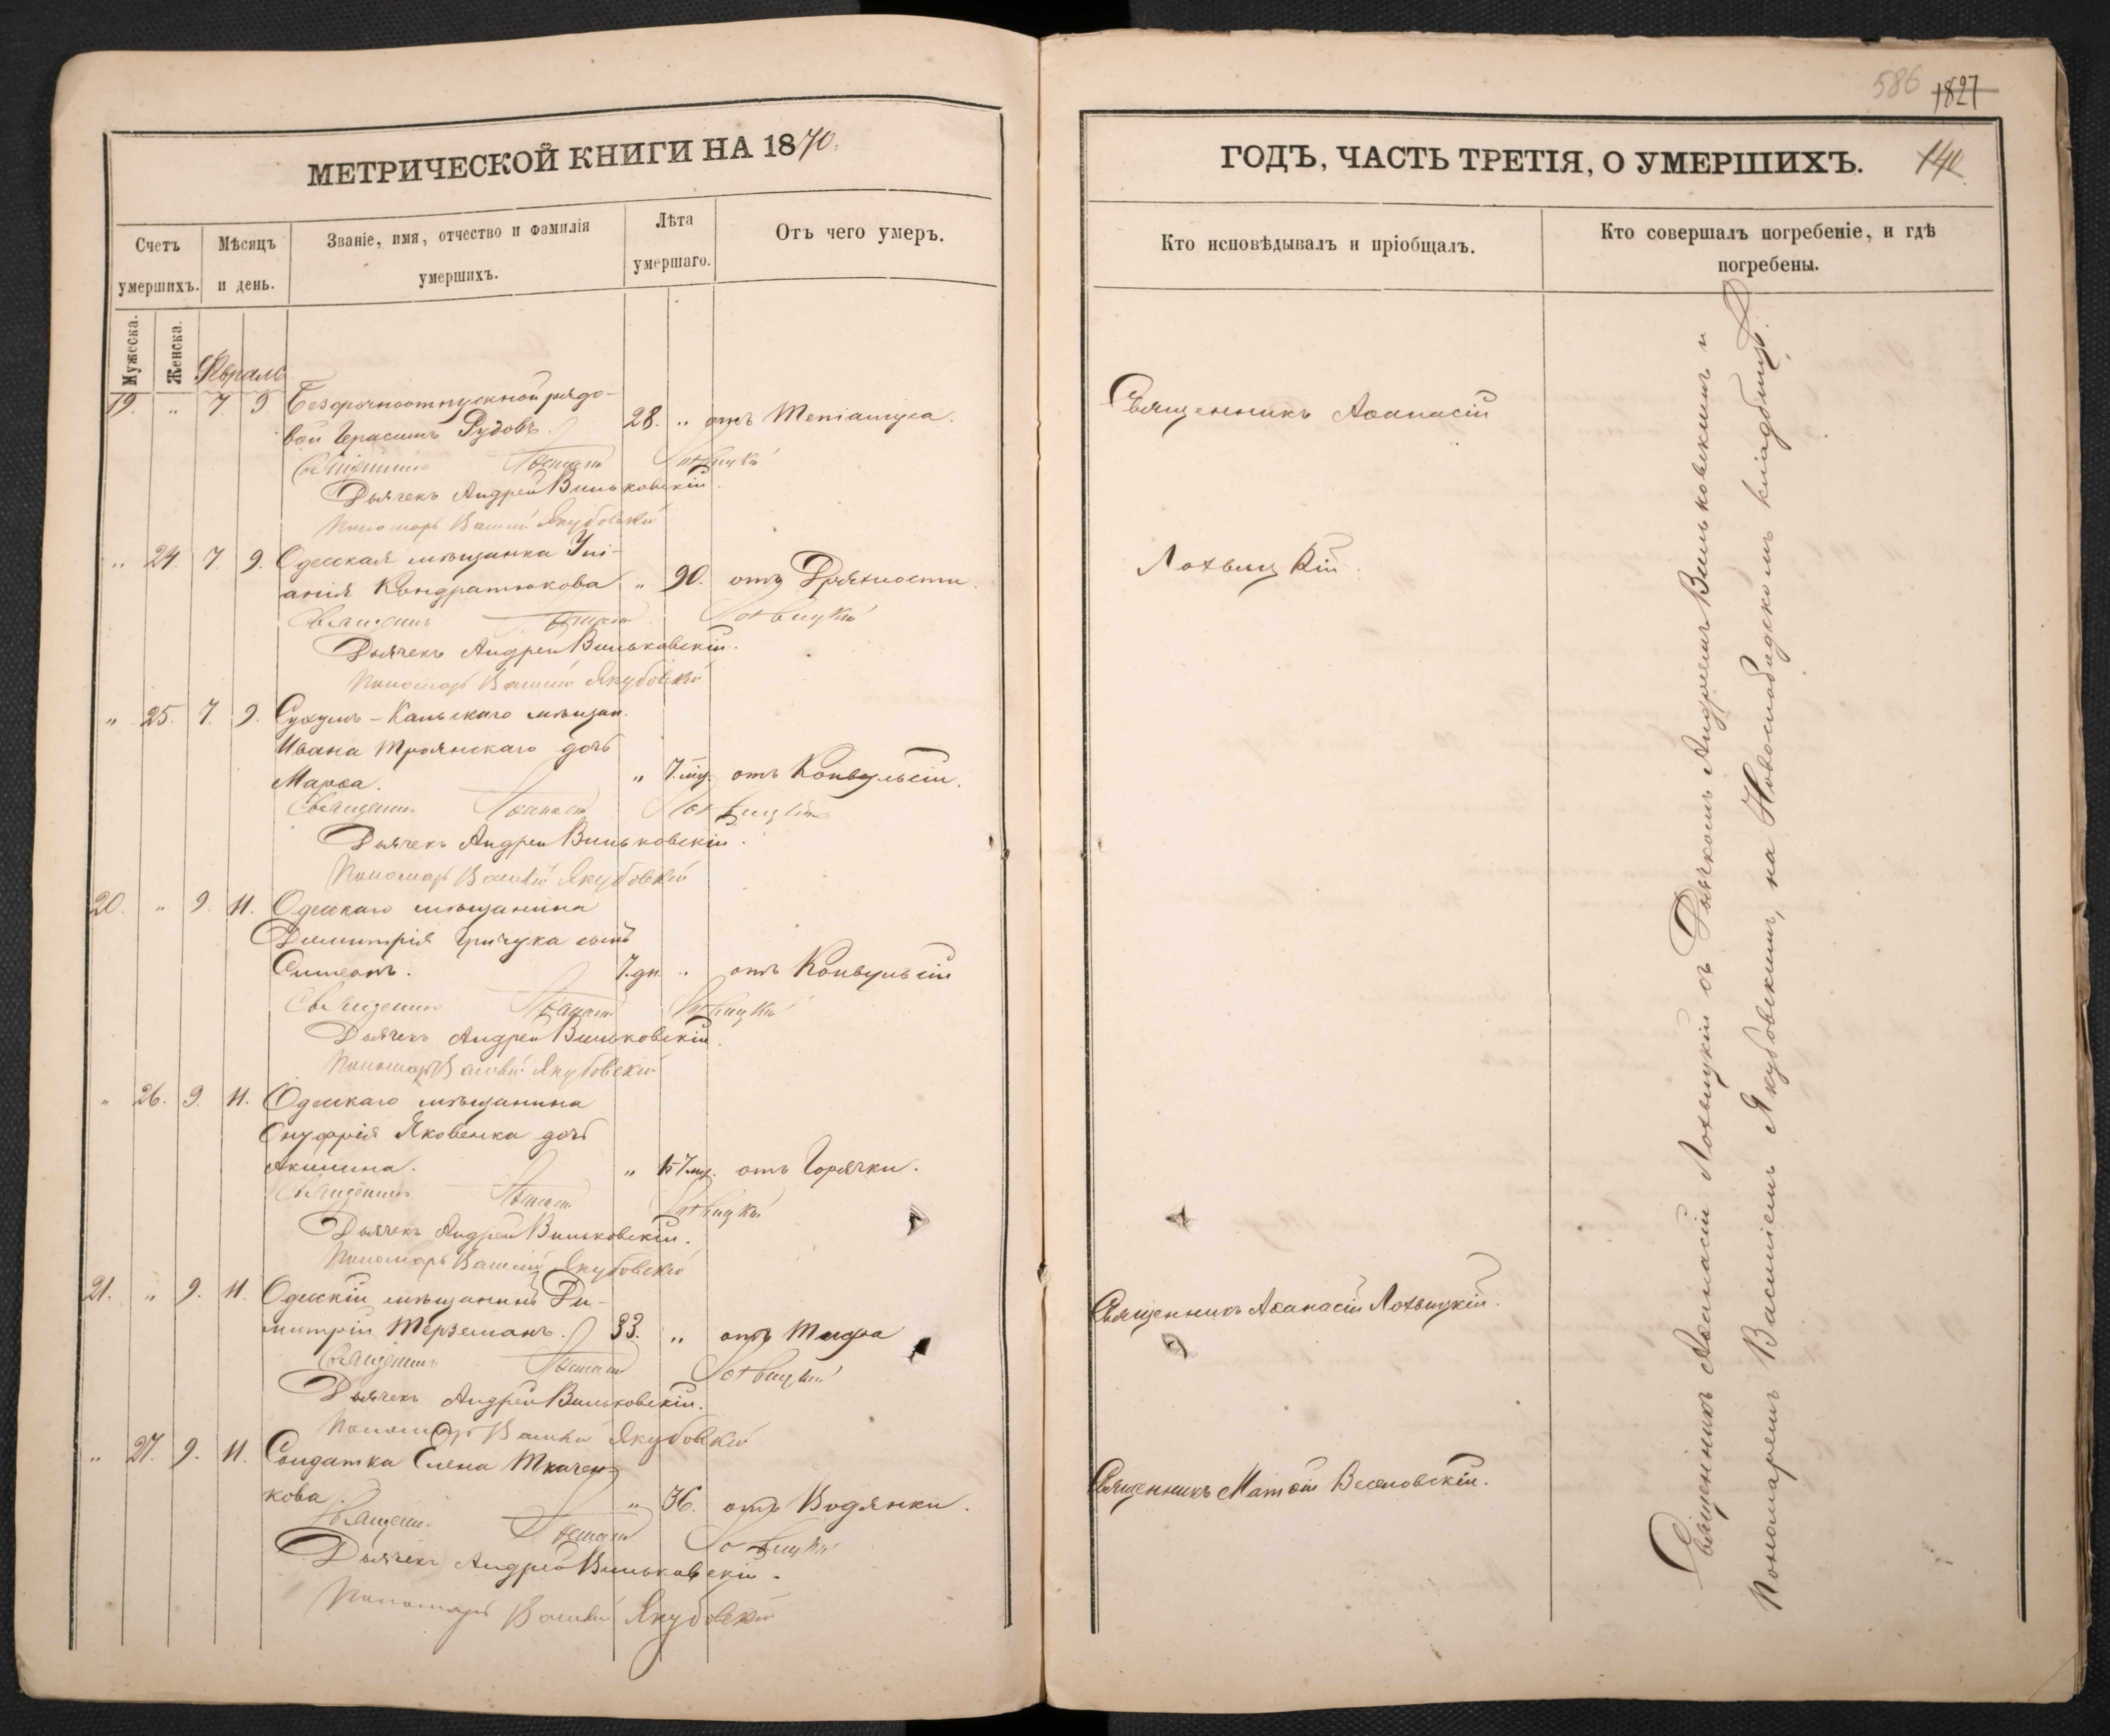 МЕТРИЧЕСКОЙ КНИГИ НА 1870.
Счетъ умершихъ.
Мѣсяцъ и день.
Званіе, имя, отчество и фамилія умершихъ.
Лѣта умершаго.
Отъ чего умеръ.
Мужеска.
Женска.
Февраль
19. „ 7 9 Безсрочноотпускной рядо-
вой Герасимъ Рудовъ. 28. „ отъ
Священникъ Аѳанасій Лохвицкій
Дьячекъ Андрей Виньковскій.
Пономарь Василій Якубовскій
„ 24. 7. 9. Одесская мѣщанка Ули-
анія Кондратюкова „ 90. отъ Дряхлости.
Священникъ Аѳанасій Лохвицкій
Дьячекъ Андрей Виньковскій.
Пономарь Василій Якубовскій
„ 25. 7. 9. Сухумъ-Кальскаго мѣщан.
Ивана Троянскаго дочь
Марѳа. „ 7. мѣс. отъ Конвульсіи.
Священникъ Аѳанасій Лохвицкій
Дьячекъ Андрей Виньковскій.
Пономарь Василій Якубовскій
20. „ 9. 11. Одесскаго мѣщанина
Димитрія Гричука сынъ
Симеонъ. 7. дн. „ отъ Конвульсіи
Священникъ Аѳанасій Лохвицкій
Дьячекъ Андрей Виньковскій.
Пономарь Василій Якубовскій
„ 26. 9. 11. Одесскаго мѣщанина
Онуфрія Яковенка дочь
Акилина. „ отъ Горячки.
Священникъ Аѳанасій Лохвицкій
Дьячекъ Андрей Виньковскій.
Пономарь Василій Якубовскій
21. „ 9. 11. Одесскій мѣщанинъ Ди-
митрій Терземанъ. 33. „ отъ Тифа
Священникъ Аѳанасій Лохвицкій
Дьячекъ Андрей Виньковскій.
Пономарь Василій Якубовскій
„ 27. 9. 11. Солдатка Елена Ткачен-
кова. „ 36. отъ Водянки.
Священ. Аѳанасій Лохвицкій
Дьячекъ Андрей Виньковскій.
Пономарь Василій Якубовскій
586 1827
ГОДЪ, ЧАСТЬ ТРЕТІЯ, О УМЕРШИХЪ.
Кто исповѣдывалъ и пріобщалъ.
Кто совершалъ погребеніе, и гдѣ погребены.
Священникъ Аѳанасій
Лохвицкій.
Священникъ Аѳанасій Лохвицкій.
Священникъ Матѳій Веселовскій.
Священникъ Аѳанасій Лохвицкій съ Дьячкомъ Андреемъ Виньковскимъ и
Пономаремъ Василіемъ Якубовскимъ, на Новослободскомъ кладбищѣ.